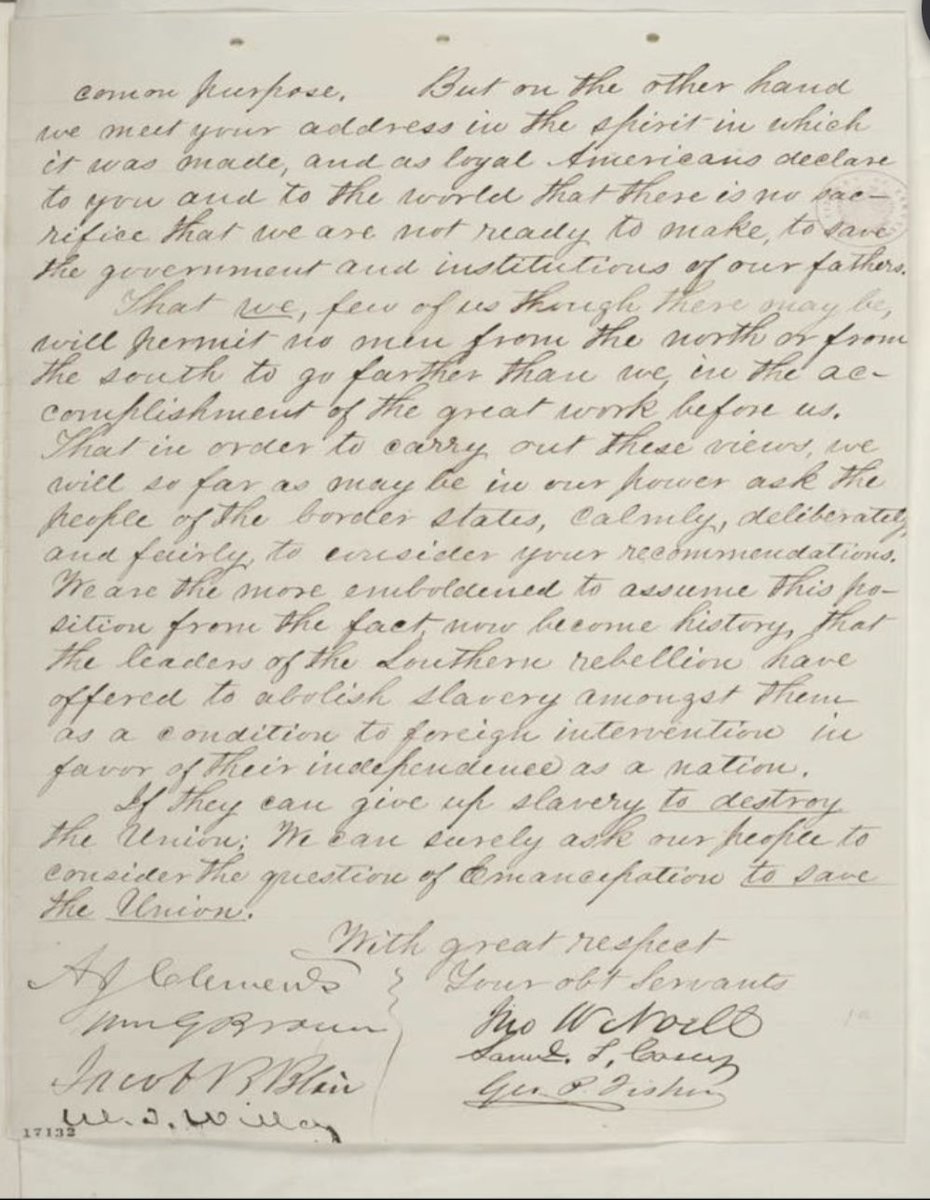 comon purpose. But on the other hand
we meet your address in the spirit in which
it was made, and as loyal Americans declare
to you and to the world that there is no sac-
rifice that we are not ready to make, to save
the government and institutions of our fathers.
That we, few of us though there may be,
will permit no men from the north or from
the south to go farther than we in the ac-
complishment of the great work before us.
That in order to carry out these views, we
will so far as may be in our power ask the
people of the border states, calmly, deliberately,
and fairly, to consider your recommendations.
We are the more emboldened to assume this po-
sition from the fact, now become history, that
the leaders of the Southern rebellion have
offered to abolish slavery amongst them
as a condition to foreign intervention in
favor of their independence as a nation.
If they can give up slavery to destroy
the Union; We can surely ask our people to
consider the question of Emancipation to save
the Union.
With great respect
Your obt Servants
A J Clements
Wm G Brown
Jacob B Blair
W. T. Willey
Jno W Noell
Saml. L. Casey
Geo. P. Fisher
17132